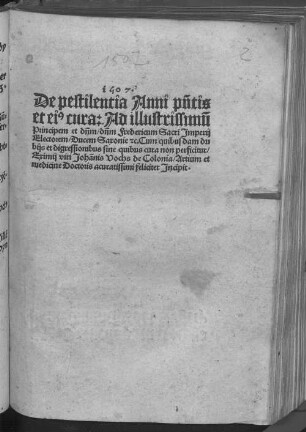 2
1507
De pestilentia Anni pñtis
et eiꝰ cura: Ad illustrissimũ
Principem et dñm/ dñm Fredericum Sacri Imperij
Electorem/ Ducem Saxonie ⁊c. Cum quibusdam du
bijs et digressionibus sine quibus cura non perficitur/
Eximij viri Johãnis Vochs de Colonia/ Artium et
medicine Doctoris acuratissimi feliciter Incipit.